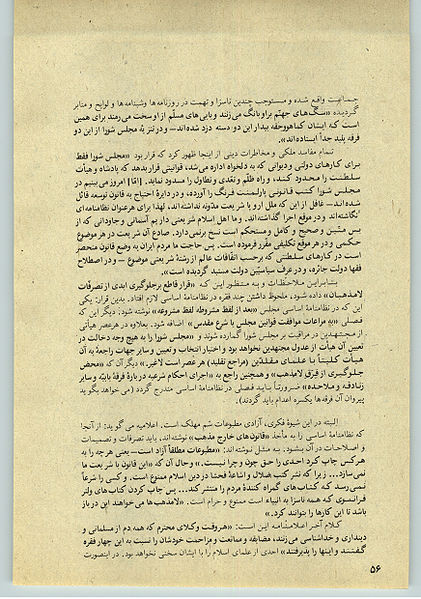 جماعت واقع شده و مستوجب چندین ناسزا و تهمت در روزنامه‌ها و شبنامه‌ها و لوایح و منابر
گردیده «سگ‌های جهنم براو بانگ می‌زنند و بابی‌های مسلّم از او سخت می‌رمند برای همین
است که ایشان کماهوحقه بیدار این دو دسته دزد شده‌اند ـ و در تنزیه مجلس شورا از این دو
فرقه پلید جداً ایستاده‌اند».
تمام مفاسد ملکی و مخاطرات دینی از اینجا ظهور کرد که قرار بود «مجلس شورا فقط
برای کارهای دولتی و دیوانی که به دلخواه اداره می‌شد، قوانینی قرار بدهد که پادشاه و هیأت
سلطنت را محدود کند، و راه ظلم و تعدی و تطاول را مسدود نماید. [امّا] امروز می‌بینیم در
مجلس شورا کتب قانونی پارلمنت فرنگ را آورده، و در دایرهٔ احتیاج به قانون توسعه قائل
شده‌اند ـ غافل از این که ملل اروپا شریعت مدوّنه نداشته‌اند، لهذا برای هر عنوان نظامنامه‌ای
نگاشته‌اند و در موقع اجرا گذاشته‌اند. و ما اهل اسلام شریعتی داریم آسمانی و جاودانی که از
بس متین و صحیح و کامل و مستحکم است نسخ برنمی‌دارد. صادع آن شریعت در هر موضوع
حکمی و در هر موقع تکلیفی مقرر فرموده است. پس حاجت ما مردم ایران به وضع قانون منحصر
است در کارهای سلطنتی که برحسب اتفاقات عالم از رشتهٔ شریعتی موضوع ـ و در اصطلاح
فقها دولت جائره، و در عرف سیاسیّین دولت مستبد گردیده است».
بنابراین ملاحظات و به منظور این که «قرار قاطع برجلوگیری ابدی از تصرفات
لامذهبان» داده شود، ملحوظ داشتن چند فقره در نظامنامه اساسی لازم افتاد. بدین قرار: یکی
این که در نظامنامه اساسی مجلس «بعد از لفظ مشروطه لفظ مشروعه» نوشته شود. دیگر این که
فصلی «به مراعات موافقت قوانین مجلس با شرع مقدس» اضافه شود. بعلاوه در هر عصر هیأتی
از مجتهدین در مراقبت بر مجلس شورا گمارده شوند و «مجلس شورا را به هیچ وجه دخالت در
تعیین آن هیأت از عدول مجتهدین نخواهد بود و اختیار انتخاب و تعیین و سایر جهات راجعهٔ به آن
هیأت کلیتاً با علمای مقلدین (مراجع تقلید) هر عصر است لاغیر.» دیگر آن که «محض
جلوگیری از فرق لامذهب» و همچنین راجع به «اجرای احکام شرعیه در بارهٔ فرقهٔ بابیّه و سایر
زنادقه و ملاحده» ضرورتاً باید فصلی در نظامنامهٔ اساسی مندرج گردد (می‌خواهد بگوید
پیروان آن فرقه‌ها یکسره اعدام باید گردند).
البته در این شیوهٔ فکری، آزادی مطبوعات سّم مهلک است. اعلامیه می‌گوید: از آنجا
که نظامنامهٔ اساسی را به مأخذ «قانون‌های خارج مذهب» نوشته‌اند، باید تصرفات و تصمیمات
و اصلاحات در آن بشود. به مثل نوشته‌اند: «مطبوعات مطلقاً آزاد است ـ یعنی هر چه را به
هر کس چاپ کرد احدی را حق چون و چرا نیست.» و حال آن که «این قانون با شریعت ما
نمی‌سازد... زیرا که نشر کتب ضلال و اشاعهٔ فحشا در دین اسلام ممنوع است. و کسی را شرعاً
نمی‌رسد که کتاب‌های گمراه کنندهٔ مردم را منتشر کند... پس چاپ کردن کتاب‌های ولتر
فرانسوی که همه ناسزا به انبیاء است ممنوع و حرام است. «لامذهب‌ها می‌خواهند این در باز
باشد تا این کارها را بتوانند کرد.»
کلام آخر اعلامنامه این است: «هر وقت وکلای محترم که همه دم از مسلمانی و
دینداری و خداشناسی می‌زنند، مضایقه و ممانعت و مزاحمت خودشان را نسبت به این چهار فقره
گفتند و اینها را پذیرفتند» احدی از علمای اسلام را با ایشان سخنی نخواهد بود. در اینصورت
۵۶